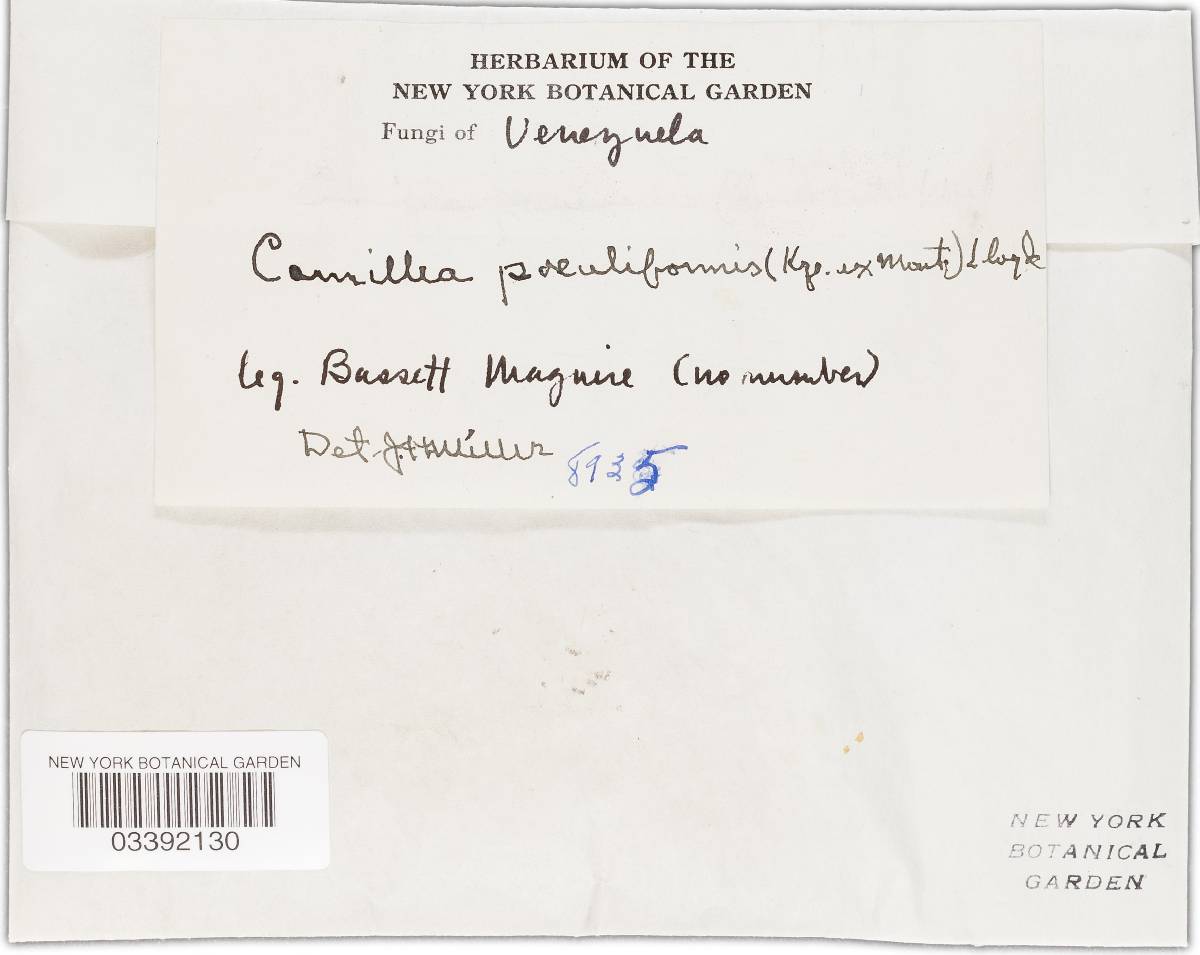 HERBARIUM OF THE
NEW YORK BOTANICAL GARDEN
Fungi of Venezuela
Camillea poculiformis (Kze. ex Mont.) Lloyd
leg. Bassett Maguire (no number)
Det. J.H. Miller 8935
NEW YORK BOTANICAL GARDEN
03392130
NEW YORK
BOTANICAL
GARDEN